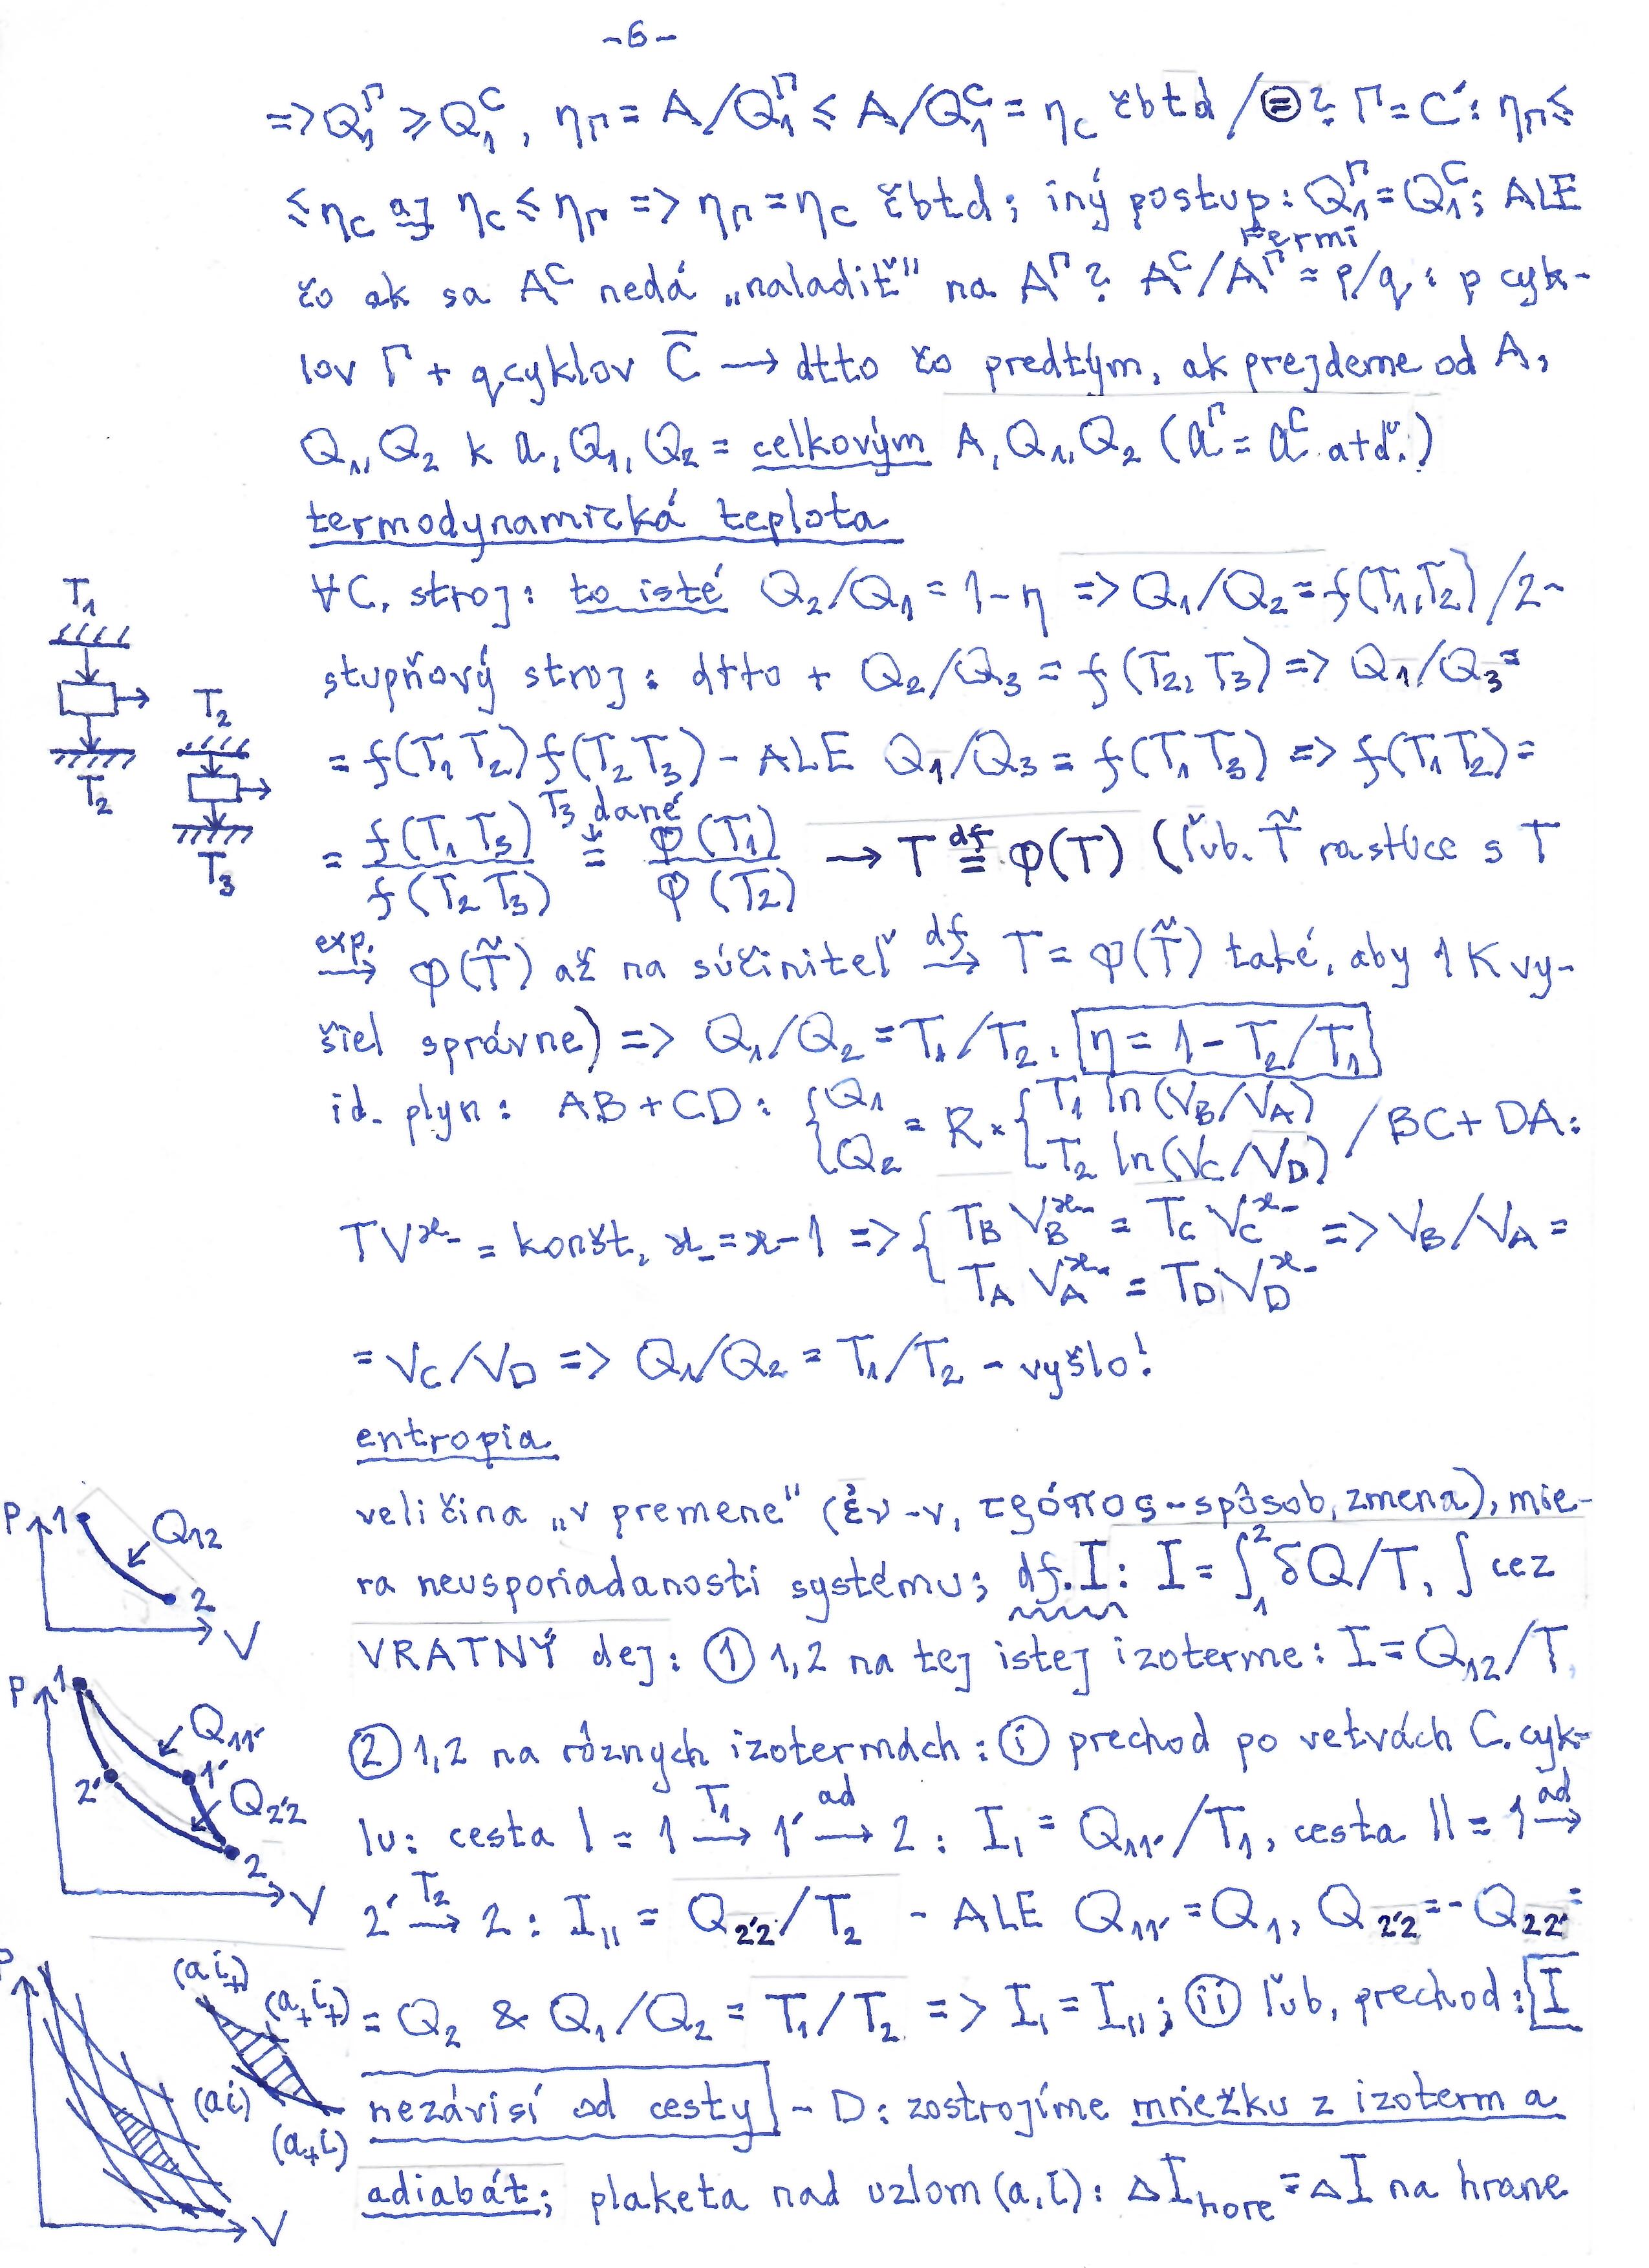 -6-
=> Q₁^Γ ≥ Q₁^C, η_Γ = A/Q₁^Γ ≤ A/Q₁^C = η_C čbtd /⊜? Γ = C': η_Γ ≤
≤ η_C aj η_C ≤ η_Γ => η_Γ = η_C čbtd; iný postup: Q₁^Γ = Q₁^C; ALE
Fermi
čo ak sa A^C nedá „naladiť" na A^Γ? A^C/A^Γ ≈ p/q: p cyk-
lov Γ + q cyklov C̄ → dtto čo predtým, ak prejdeme od A,
Q₁, Q₂ k a, Q₁, Q₂ = celkovým A, Q₁, Q₂ (a^Γ = a^C atď.)
termodynamická teplota
∀C. stroj: to isté Q₂/Q₁ = 1 - η => Q₁/Q₂ = f(T₁,T₂) /2-
stupňový stroj: dtto + Q₂/Q₃ = f(T₂, T₃) => Q₁/Q₃ =
= f(T₁ T₂) f(T₂ T₃) - ALE Q₁/Q₃ = f(T₁ T₃) => f(T₁ T₂) =
= f(T₁ T₃)/f(T₂ T₃) ≡ (T₃ dané) φ(T₁)/φ(T₂) → T ≝ φ(T) (ľub. T̃ rastúce s T
exp.→ φ(T̃) až na súčiniteľ df→ T = φ(T̃) také, aby 1 K vy-
šiel správne) => Q₁/Q₂ = T₁/T₂, η = 1 - T₂/T₁
id. plyn: AB + CD: { Q₁ Q₂ = R × { T₁ ln(V_B/V_A) T₂ ln(V_C/V_D) / BC + DA:
TV^ϰ₋ = konšt, ϰ₋ = ϰ - 1 => { T_B V_B^ϰ₋ = T_C V_C^ϰ₋ T_A V_A^ϰ₋ = T_D V_D^ϰ₋ => V_B/V_A =
= V_C/V_D => Q₁/Q₂ = T₁/T₂ - vyšlo!
entropia
veličina „v premene" (ἐν - v, τρόπος - spôsob, zmena), mie-
ra neusporiadanosti systému; df. I: I = ∫₁² δQ/T, ∫ cez
VRATNÝ dej: ① 1,2 na tej istej izoterme: I = Q₁₂/T,
② 1,2 na rôznych izotermách: ⓘ prechod po vetvách C. cyk-
lu: cesta I = 1 T₁→ 1' ad→ 2: I_I = Q₁₁'/T₁, cesta II = 1 ad→
2' T₂→ 2: I_II = Q₂'₂/T₂ - ALE Q₁₁' = Q₁, Q₂'₂ = -Q₂₂' =
= Q₂ & Q₁/Q₂ = T₁/T₂ => I_I = I_II; (ii) ľub. prechod: I
nezávisí od cesty - D: zostrojíme mriežku z izoterm a
adiabát; plaketa nad uzlom (a,i): ΔI_hore = ΔI na hrane
T₁
T₂
T₂
T₃
P
1
Q₁₂
2
V
P
1
Q₁₁'
1'
2'
Q₂'₂
2
V
P
(a i₊)
(a₊ i₊)
(a i)
(a₊ i)
V